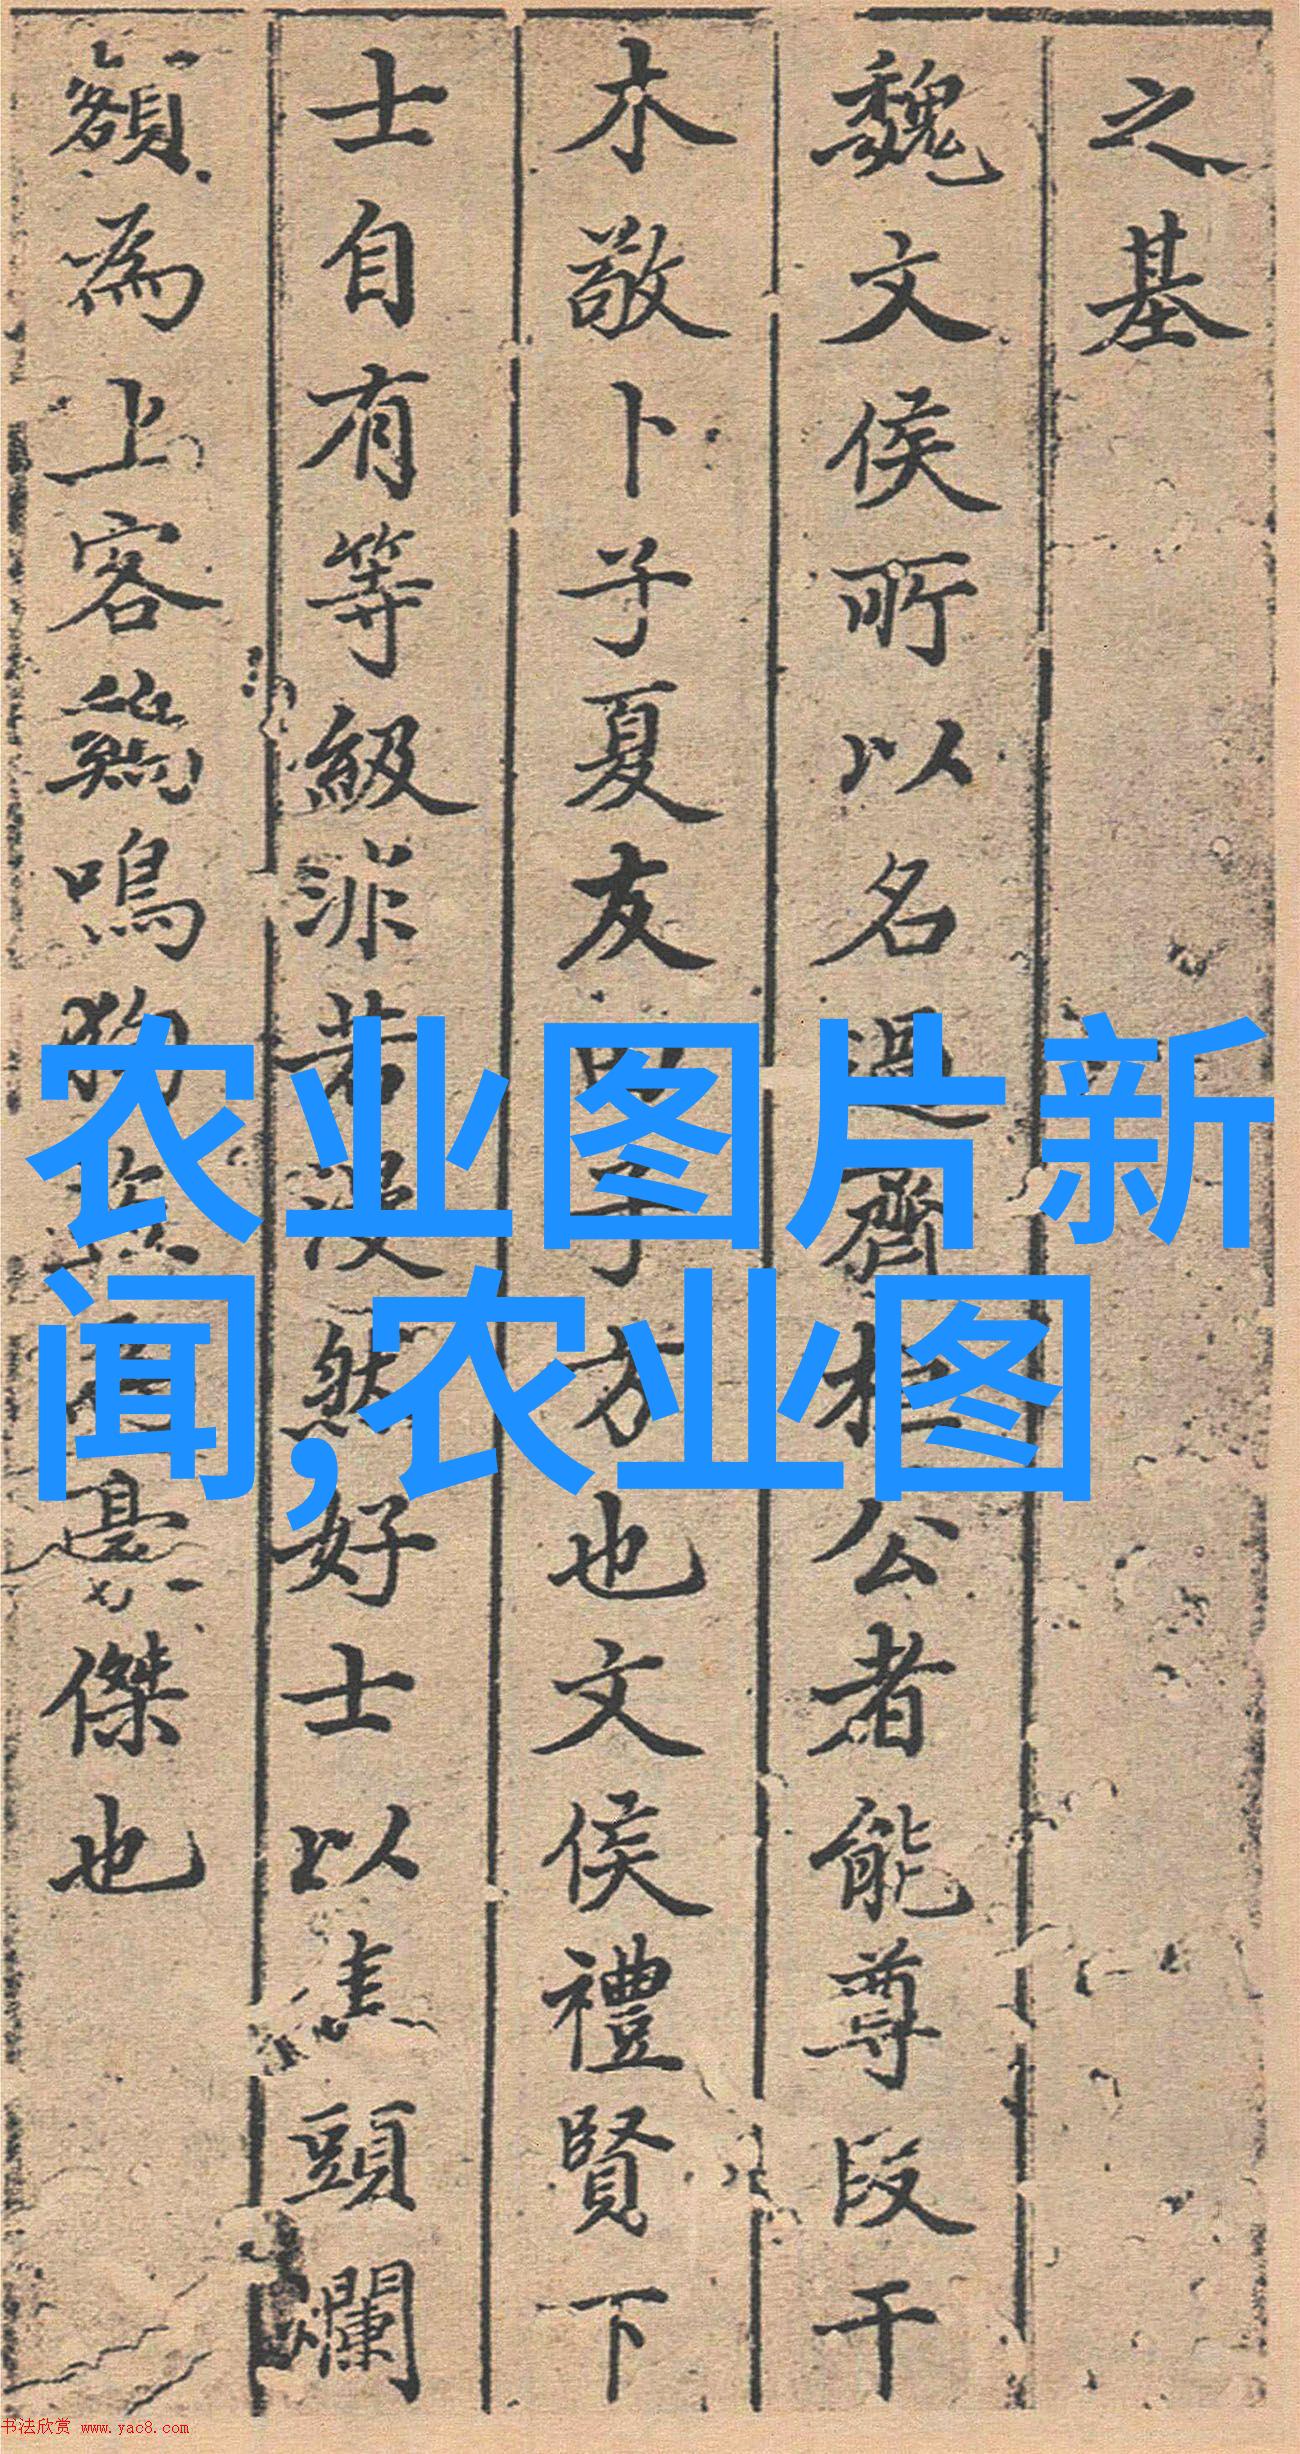 之基
魏文侯所以名過齊桓公者能尊段干
木敬卜子夏友田子方也文侯禮賢下
士自有等級非若漫然好士以焦頭爛
額為上客鷄鳴狗盜 豪傑也
农业图片新
闻,农业图
书法欣赏 www.yac8.com